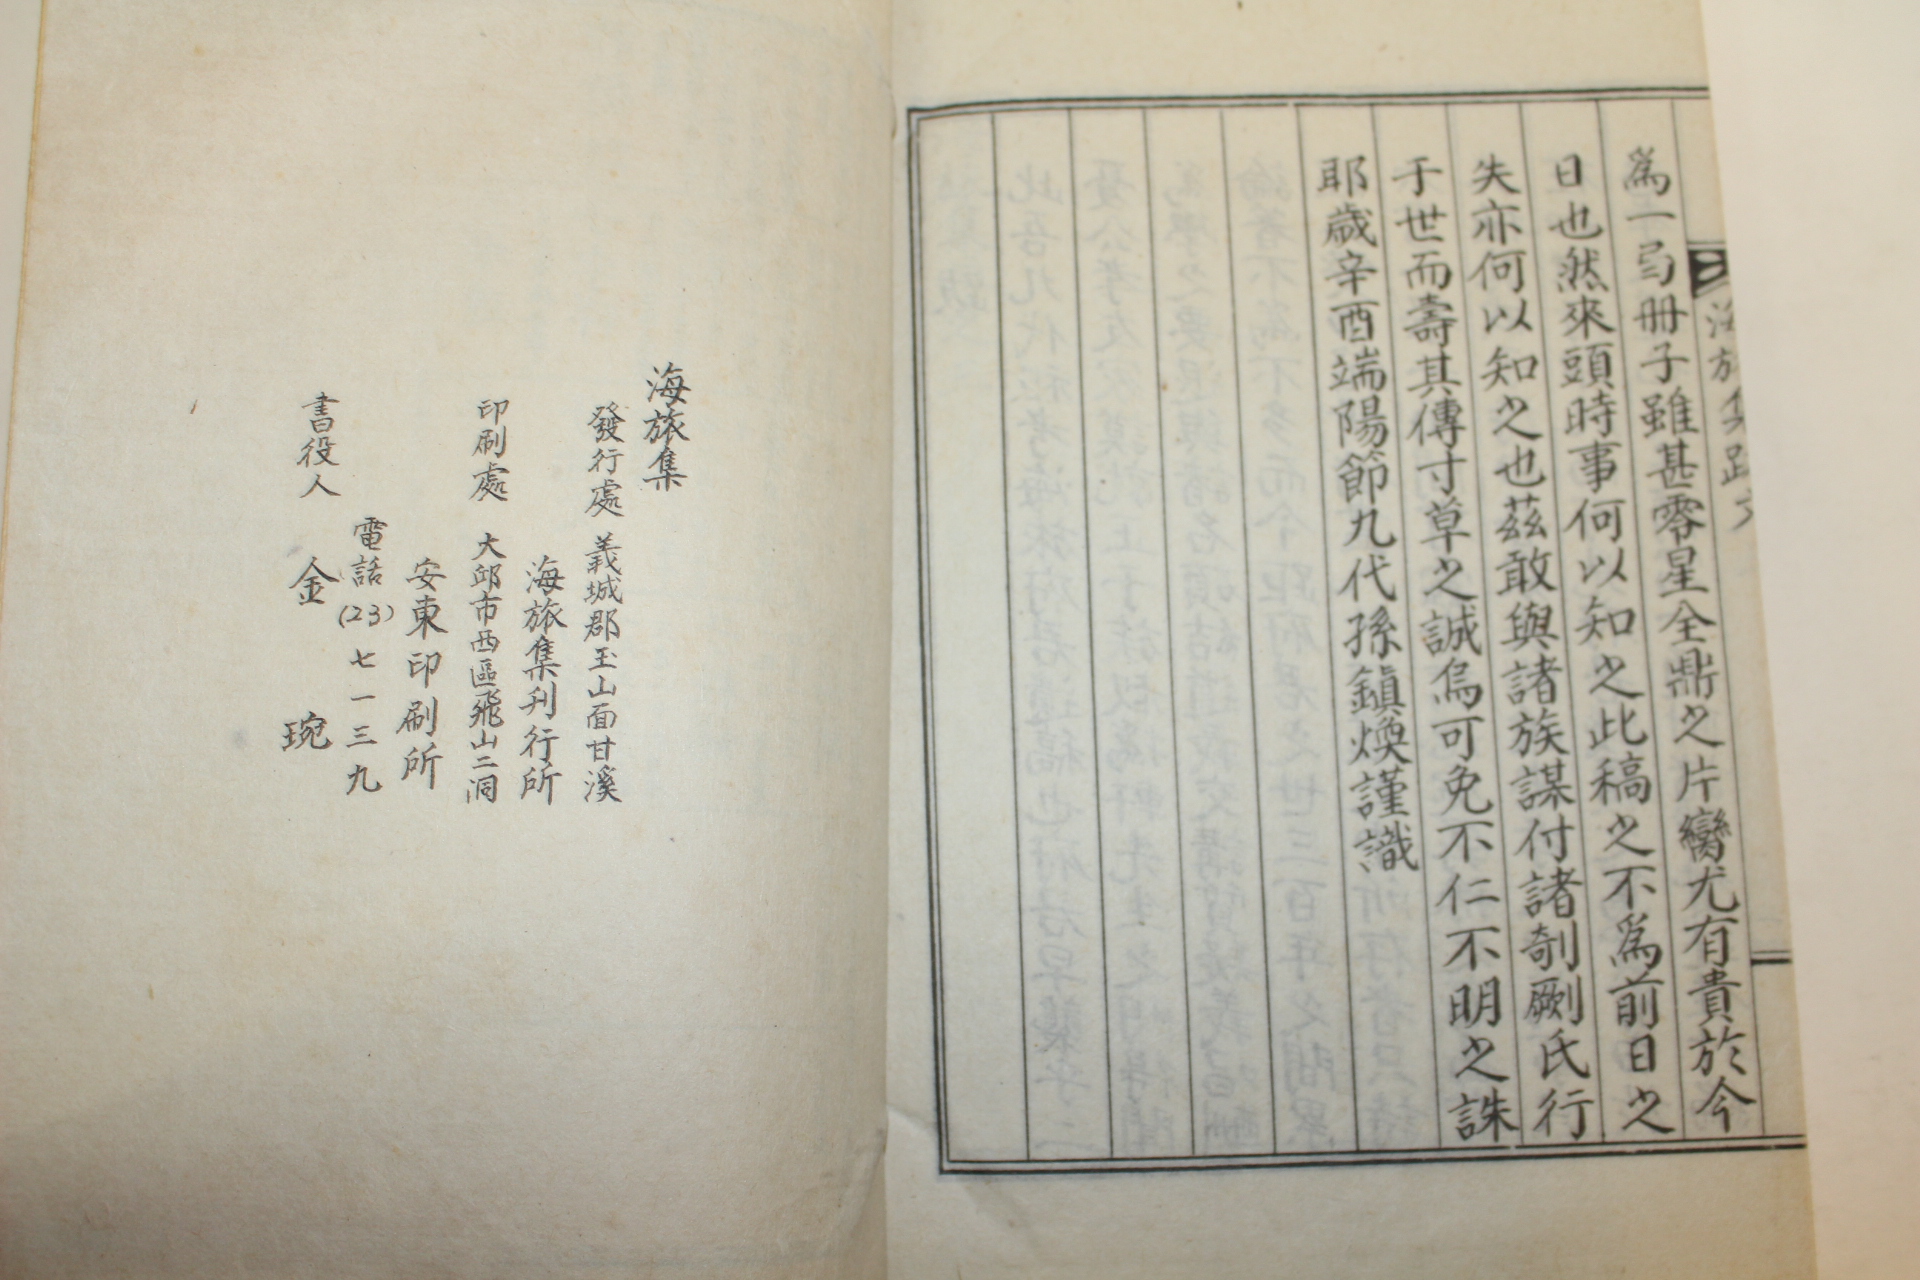 海旅集跋文
一
爲一局册子雖甚零星全鼎之片臠尤有貴於今
日也然來頭時事何以知之此稿之不爲前日之
失亦何以知之也茲敢與諸族謀付諸剞劂氏行
于世而壽其傳寸草之誠烏可免不仁不明之誅
耶歲辛酉端陽節九代孫鎭煥謹識
海旅集
發行處 義城郡玉山面甘溪
海旅集刋行所
印刷處 大邱市西區飛山二洞
安東印刷所
電話(23)七一三九
書役人 金 琬